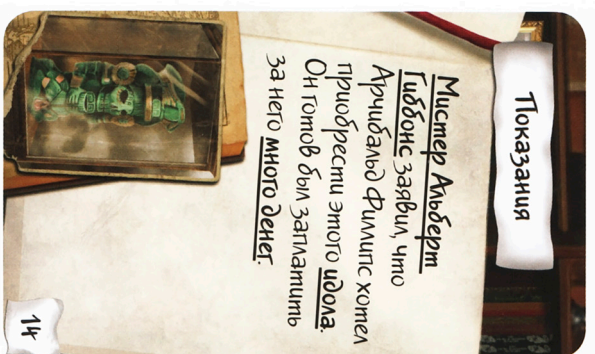 Показания
Мистер Альберт
Гиббонс заявил, что
Арчибальд Филлипс хотел
приобрести этого идола.
Он готов был заплатить
за него много денег.
14